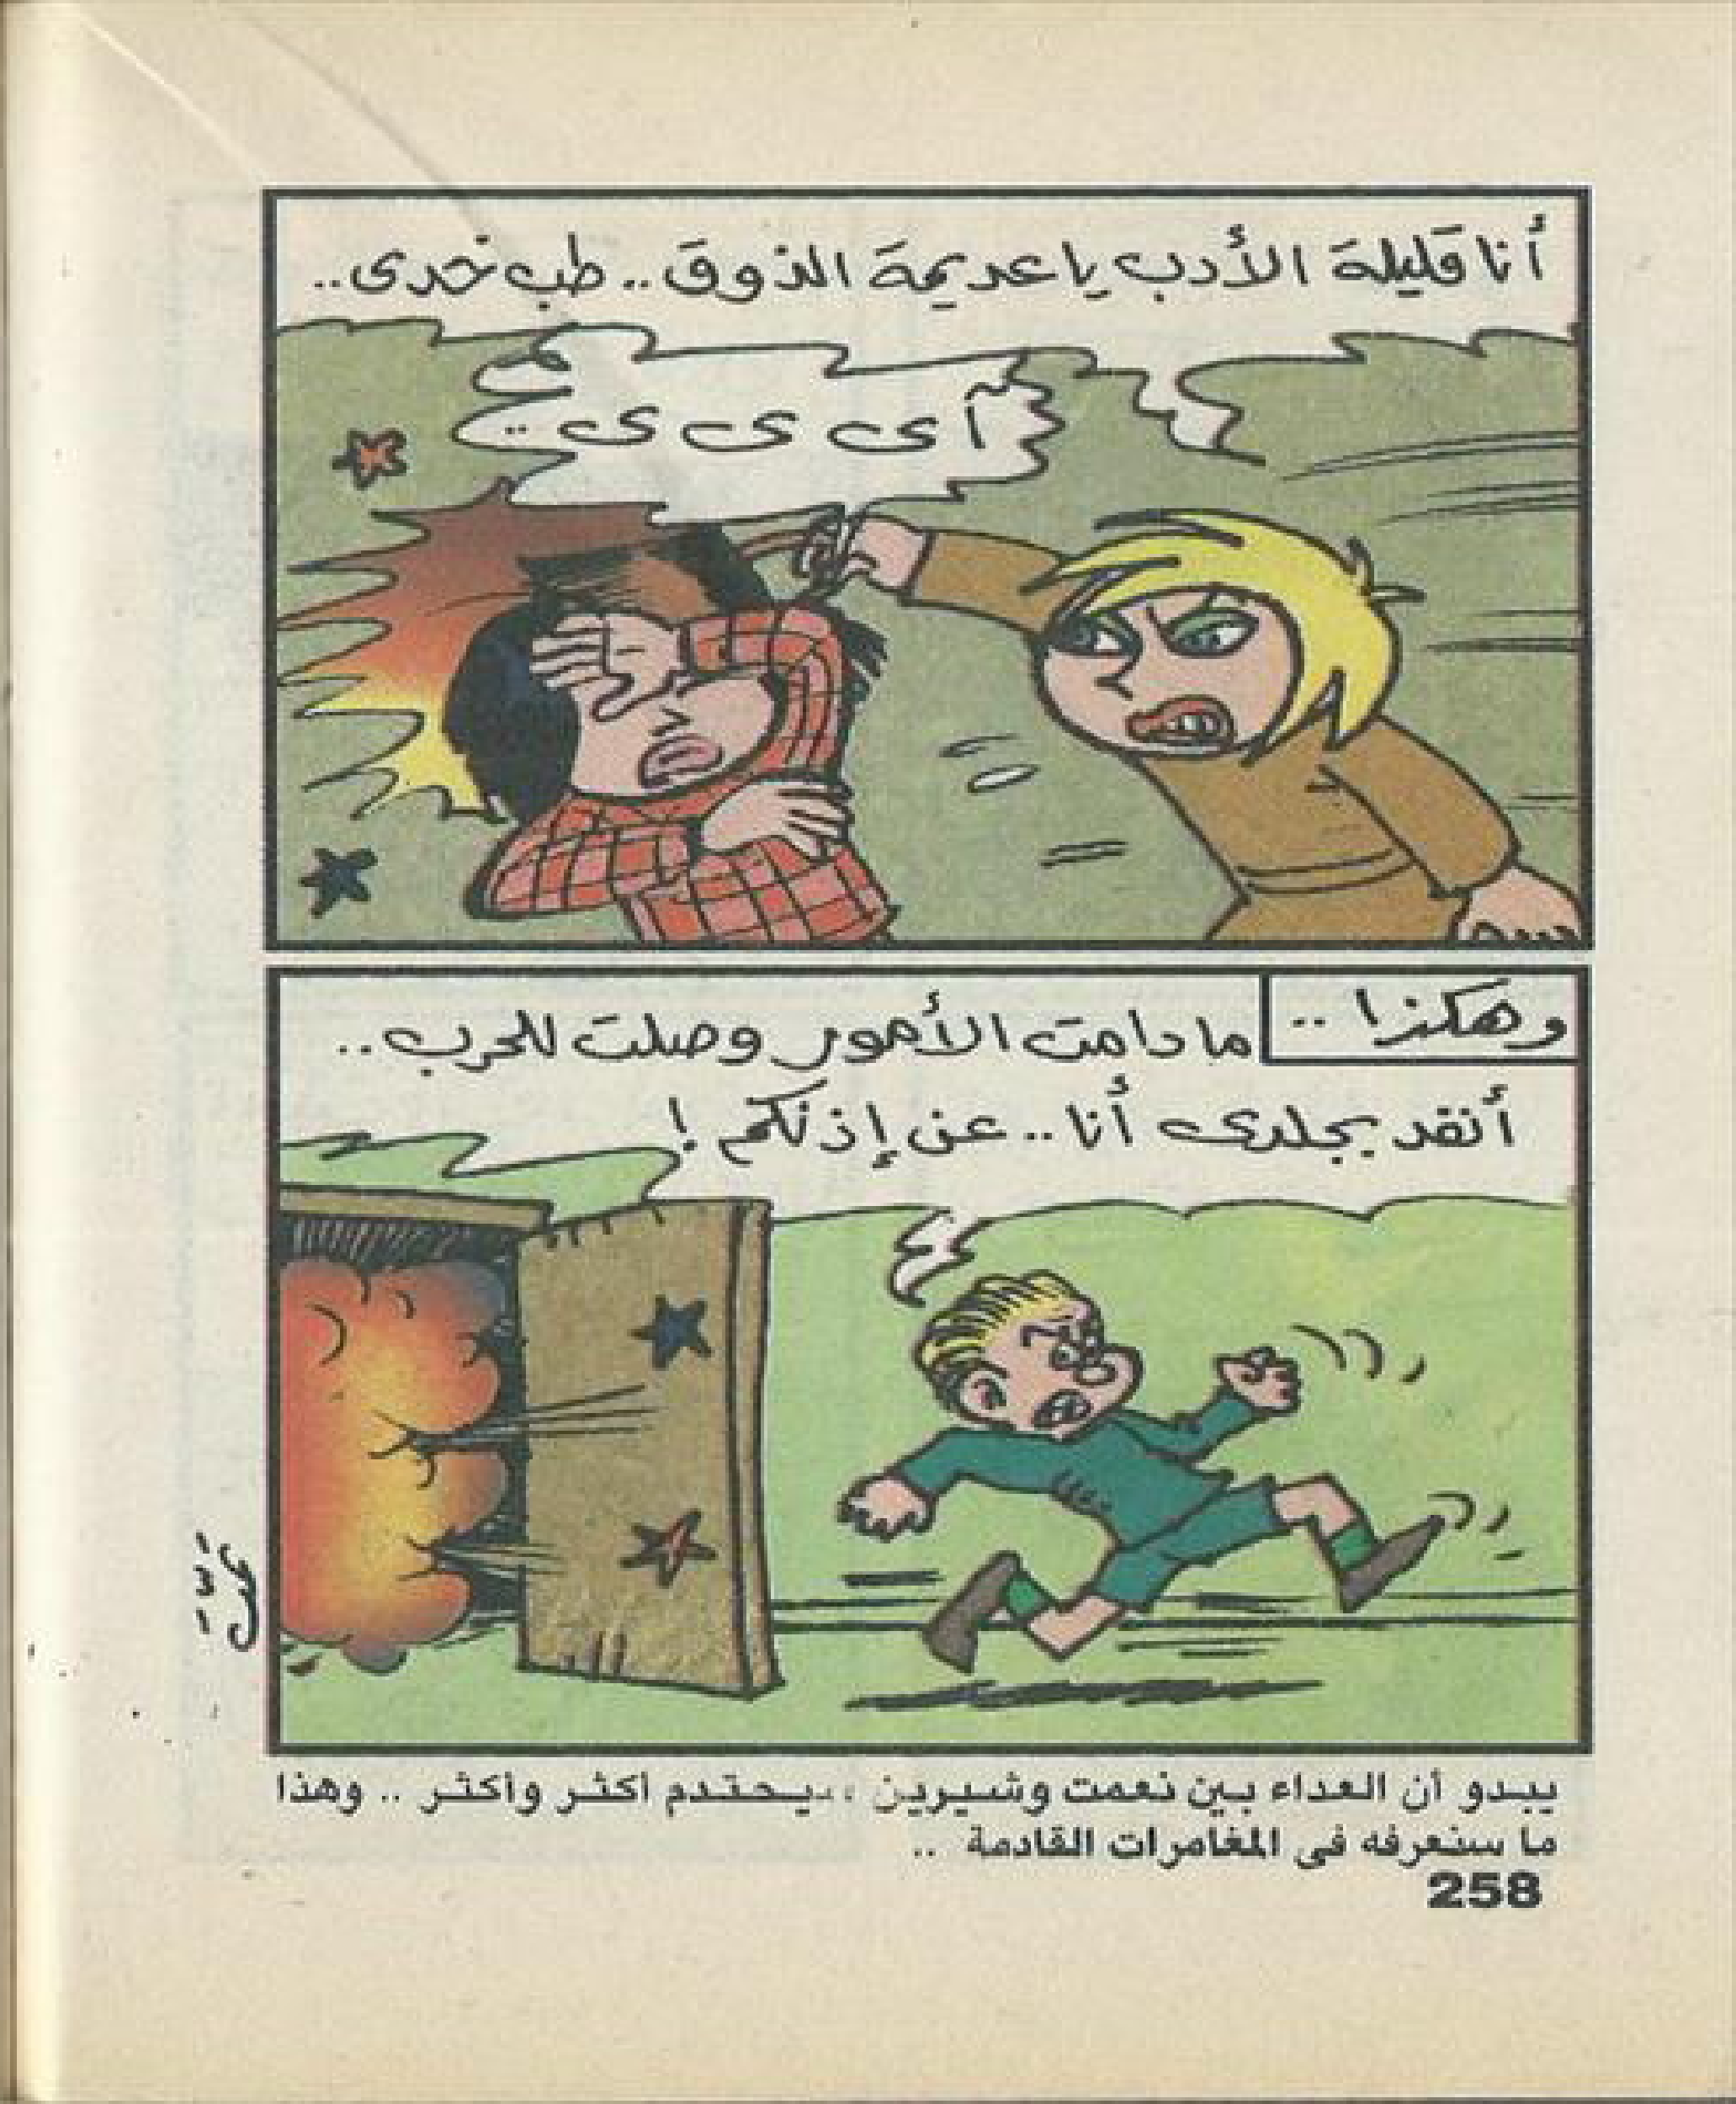 أنا قليلة الأدب يا عديمة الذوق .. طب خدى ..
آى ى ى ..
وهكذا ..
ما دامت الأمور وصلت للحرب ..
أنفد بجلدى أنا .. عن إذنكم !
يبدو أن العداء بين نعمت وشيرين ، يحتدم أكثر وأكثر .. وهذا
ما سنعرفه فى المغامرات القادمة ..
258